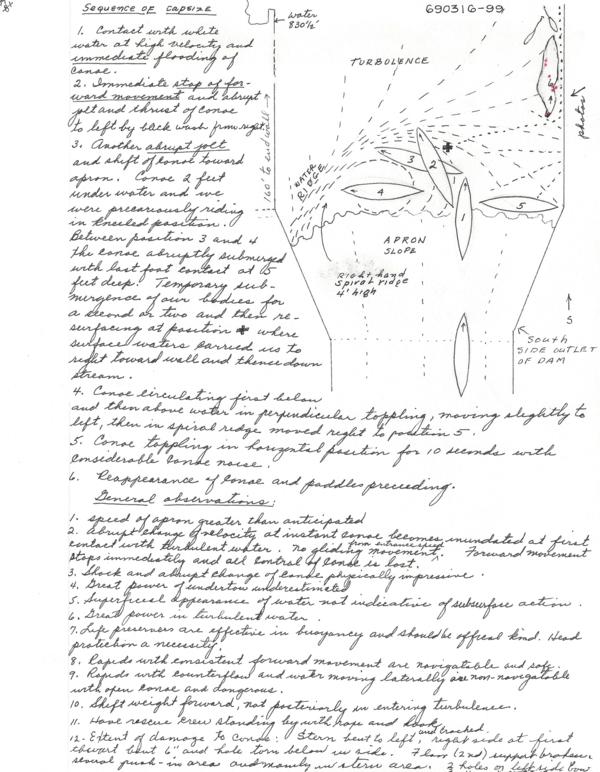 Sequence of Capsize
690316-99
1. Contact with white
water at high velocity and
immediate flooding of
canoe.
2. Immediate stop of for-
ward movement and abrupt
jolt and thrust of canoe
to left by back wash from right.
3. Another abrupt jolt
and shift of canoe toward
apron. Canoe 2 feet
under water and we
were precariously riding
in kneeled position.
Between position 3 and 4
the canoe abruptly submerged
with last foot contact at 5
feet deep. Temporary sub-
mergence of our bodies for
a second or two and then re-
surfacing at position ✚ where
surface waters carried us to
right toward wall and thence down
stream.
4. Canoe circulating first below
and then above water in perpendicular toppling, moving slightly to
left, then in spiral ridge moved right to position 5.
5. Canoe toppling in horizontal position for 10 seconds with
considerable canoe noise.
6. Reappearance of canoe and paddles preceeding.
water
830½
TURBULENCE
160' to end wall
photos
6
WATER
RIDGE
3
2
4
1
5
APRON
SLOPE
Right hand
spiral ridge
4' high
S
South
SIDE OUTLET
OF DAM
General observations:
1. speed of apron greater than anticipated
2. Abrupt change of velocity at instant canoe becomes inundated at first
contact with turbulent water. No gliding movement from entrance speed. Forward movement
stops immediately and all control of canoe is lost.
3. Shock and abrupt change of canoe physically impressive.
4. Great power of undertow underestimated
5. Superficial appearance of water not indicative of subsurface action.
6. Great power in turbulent water.
7. Life preservers are effective in buoyancy and should be official kind. Head
protection a necessity.
8. Rapids with consistent forward movement are navigatable and safe.
9. Rapids with counterflow and water moving laterally are non-navigatable
with open canoe and dangerous.
10. Shift weight forward, not posteriorly in entering turbulence.
11. Have rescue crew standing by with rope and hook
12. Extent of damage to canoe: Stern bent to left, and cracked, right side at first
thwart bent 6" and hole torn below in side. Floor (2nd) support broken.
several push-in area and mainly in stern area. 3 holes on left side bow